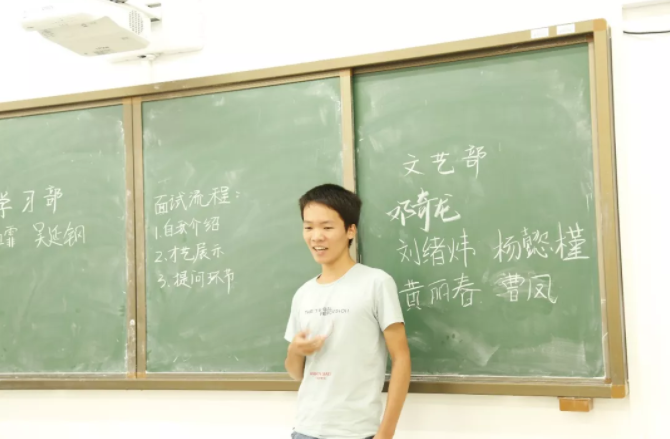 学习部
雪 吴延钢
面试流程：
1.自我介绍
2.才艺展示
3.提问环节
文艺部
邓奇龙
刘绪炜 杨懿槿
黄丽春 曹凤